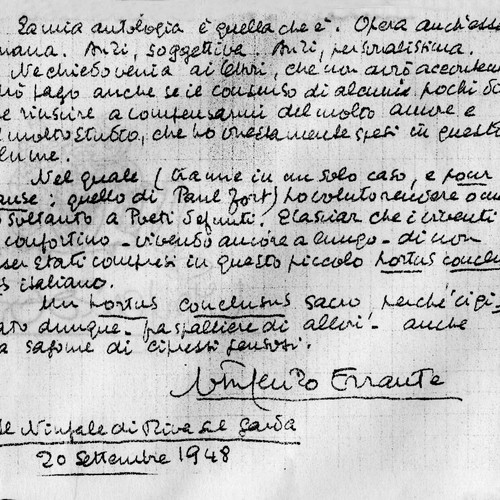 La mia antologia è quella che è. Opera anch'essa
umana. Anzi, soggettiva. Anzi, personalissima.
Ne chiedo venia ai lettori, che non avrò accontentati
pago anche se il consenso di alcuni pochi
riuscire a compensarmi del molto amore e
molto studio, che ho onestamente spesi in questo
lume.
Nel quale (tranne in un solo caso, e pour
cause: quello di Paul Fort) ho voluto rendere
soltanto a Poeti defunti. E lasciar che i viventi
confortino – vivendo ancora a lungo – di non
esser stati compresi in questo piccolo hortus conclu
italiano.
Un hortus conclusus sacro perché cigi-
ato dunque – fra spalliere di allori – anche
a siepone di cipressi pensosi.
Vincenzo Errante
Ninfale di Riva sul Garda
20 Settembre 1948